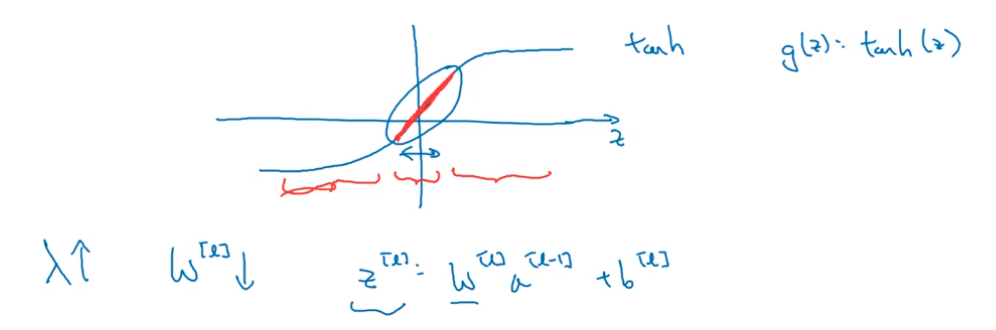 tanh g(z) = tanh(z)
z
λ↑ W^[l]↓ z^[l] = W^[l] a^[l-1] + b^[l]